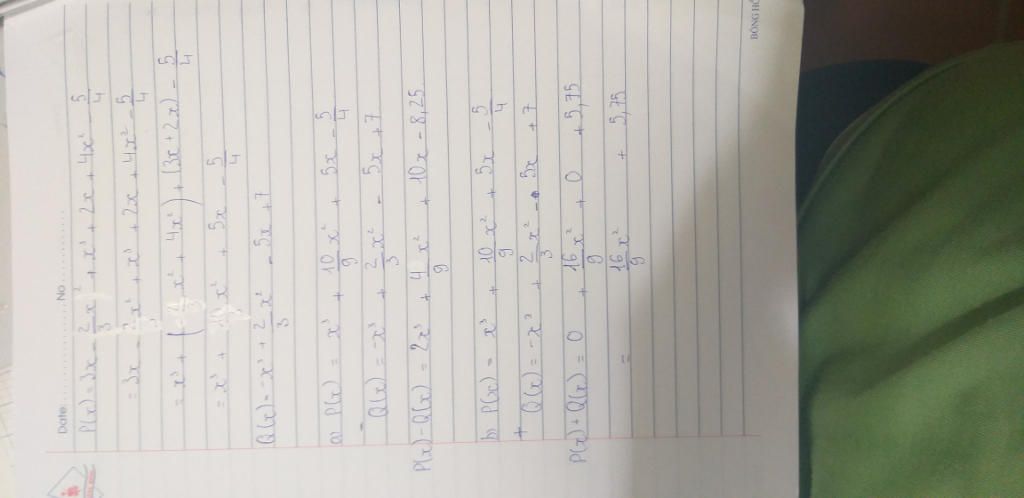 Date: No
P(x) = 3x - 2/3 x² + x³ + 2x + 4x² - 5/4
= 3x - 2/3 x² + x³ + 2x + 4x² - 5/4
= x³ + ( x² + 4x²) + (3x + 2x) - 5/4
= x³ + x² + 5x - 5/4
Q(x) = -x³ + 2/3 x² - 5x + 7
a) P(x) = x³ + 10/9 x² + 5x - 5/4
-
Q(x) = -x³ + 2/3 x² - 5x + 7
P(x) - Q(x) = 2x³ + 4/9 x² + 10x - 8,25
b) P(x) = x³ + 10/9 x² + 5x - 5/4
+
Q(x) = -x³ + 2/3 x² - 5x + 7
P(x) + Q(x) = 0 + 16/9 x² + 0 + 5,75
= 16/9 x² + 5,75